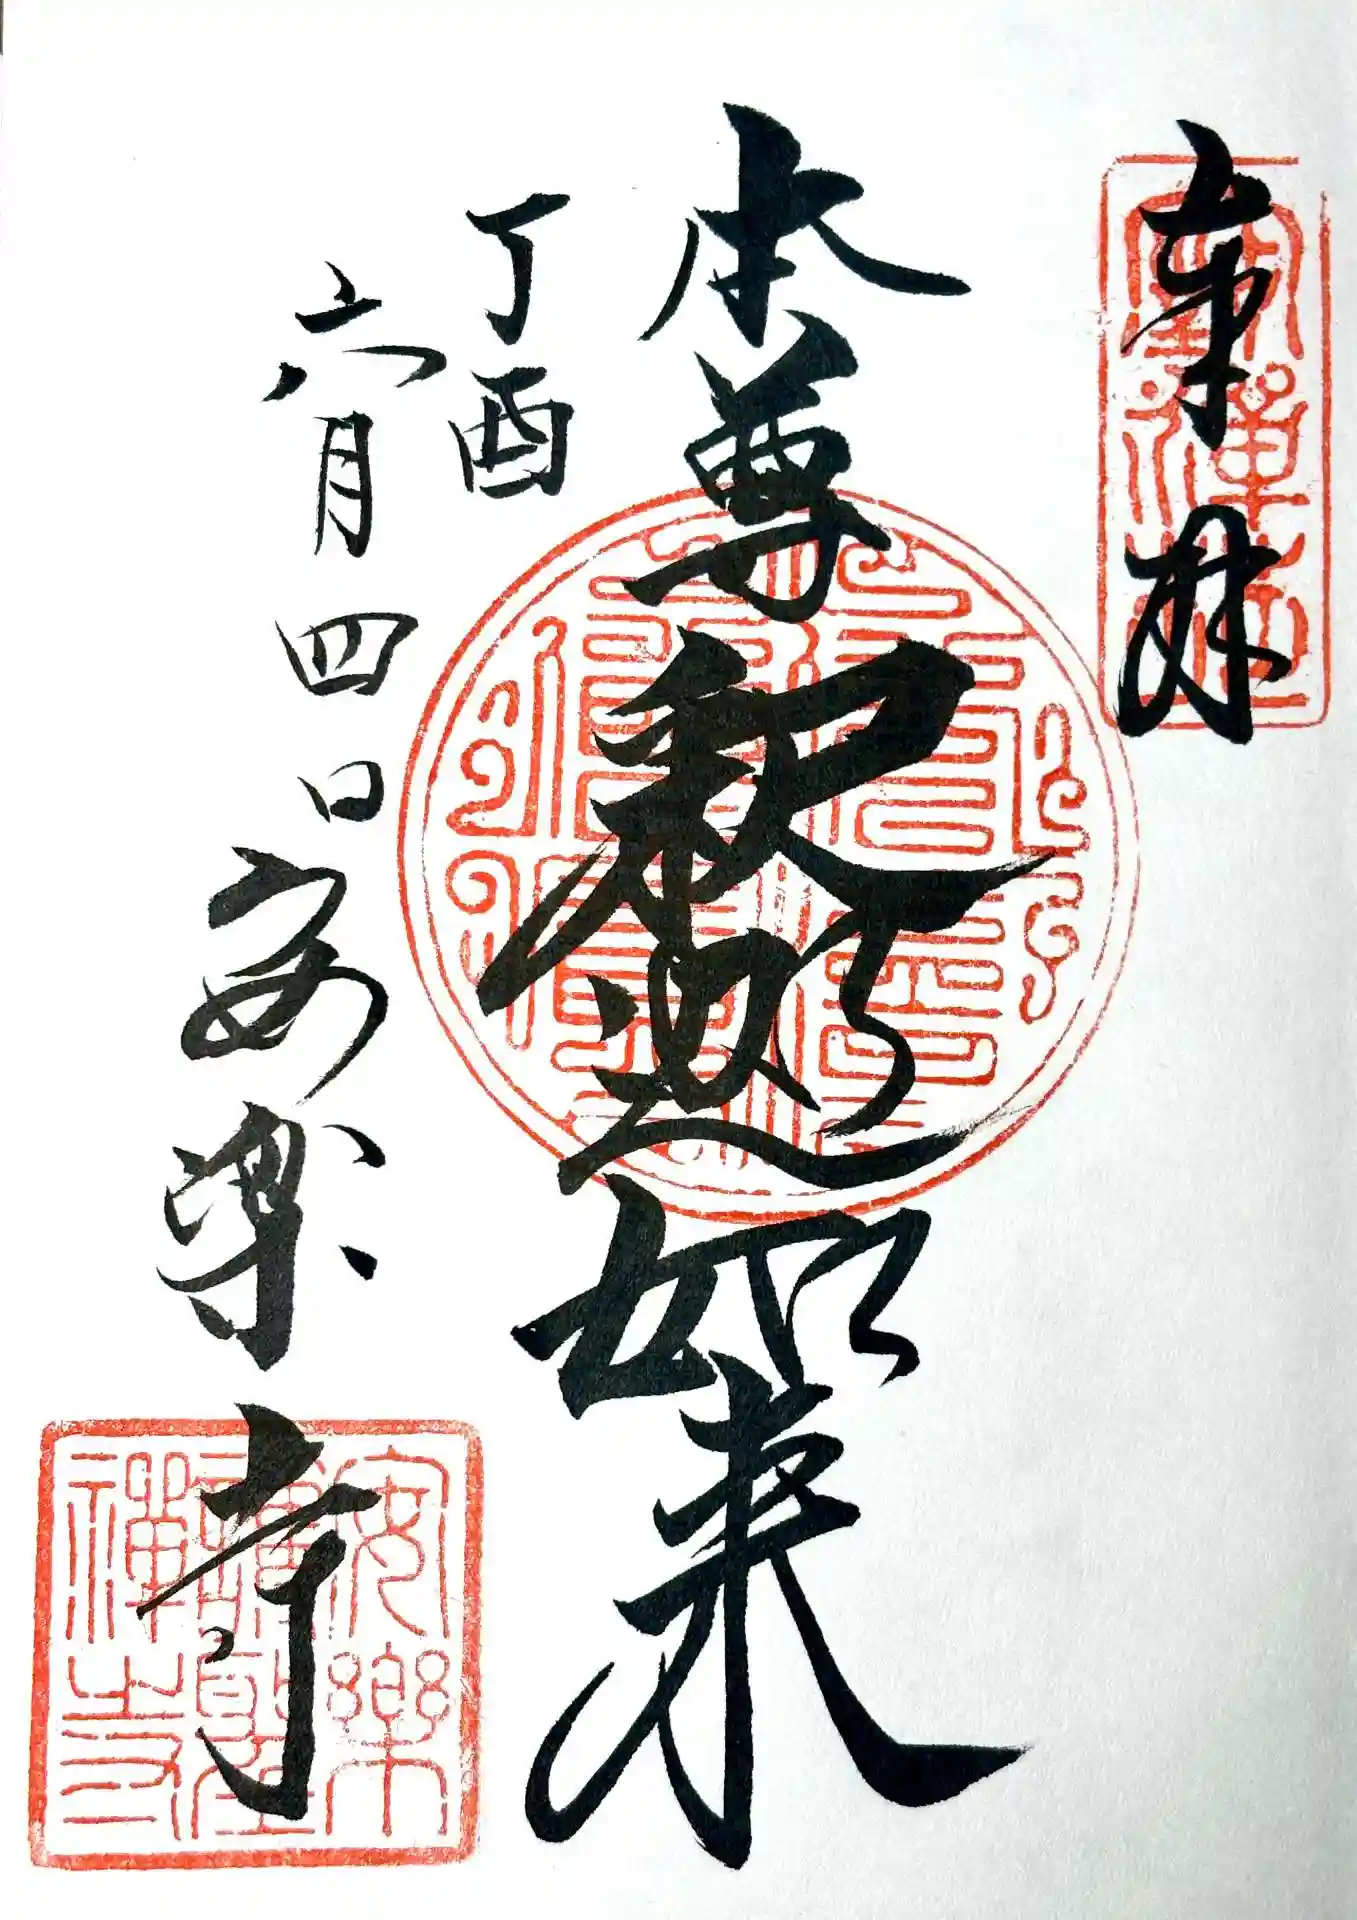 奉拝
本尊釈迦如来
丁酉
六月四日 安楽寺
安樂護聖禅寺